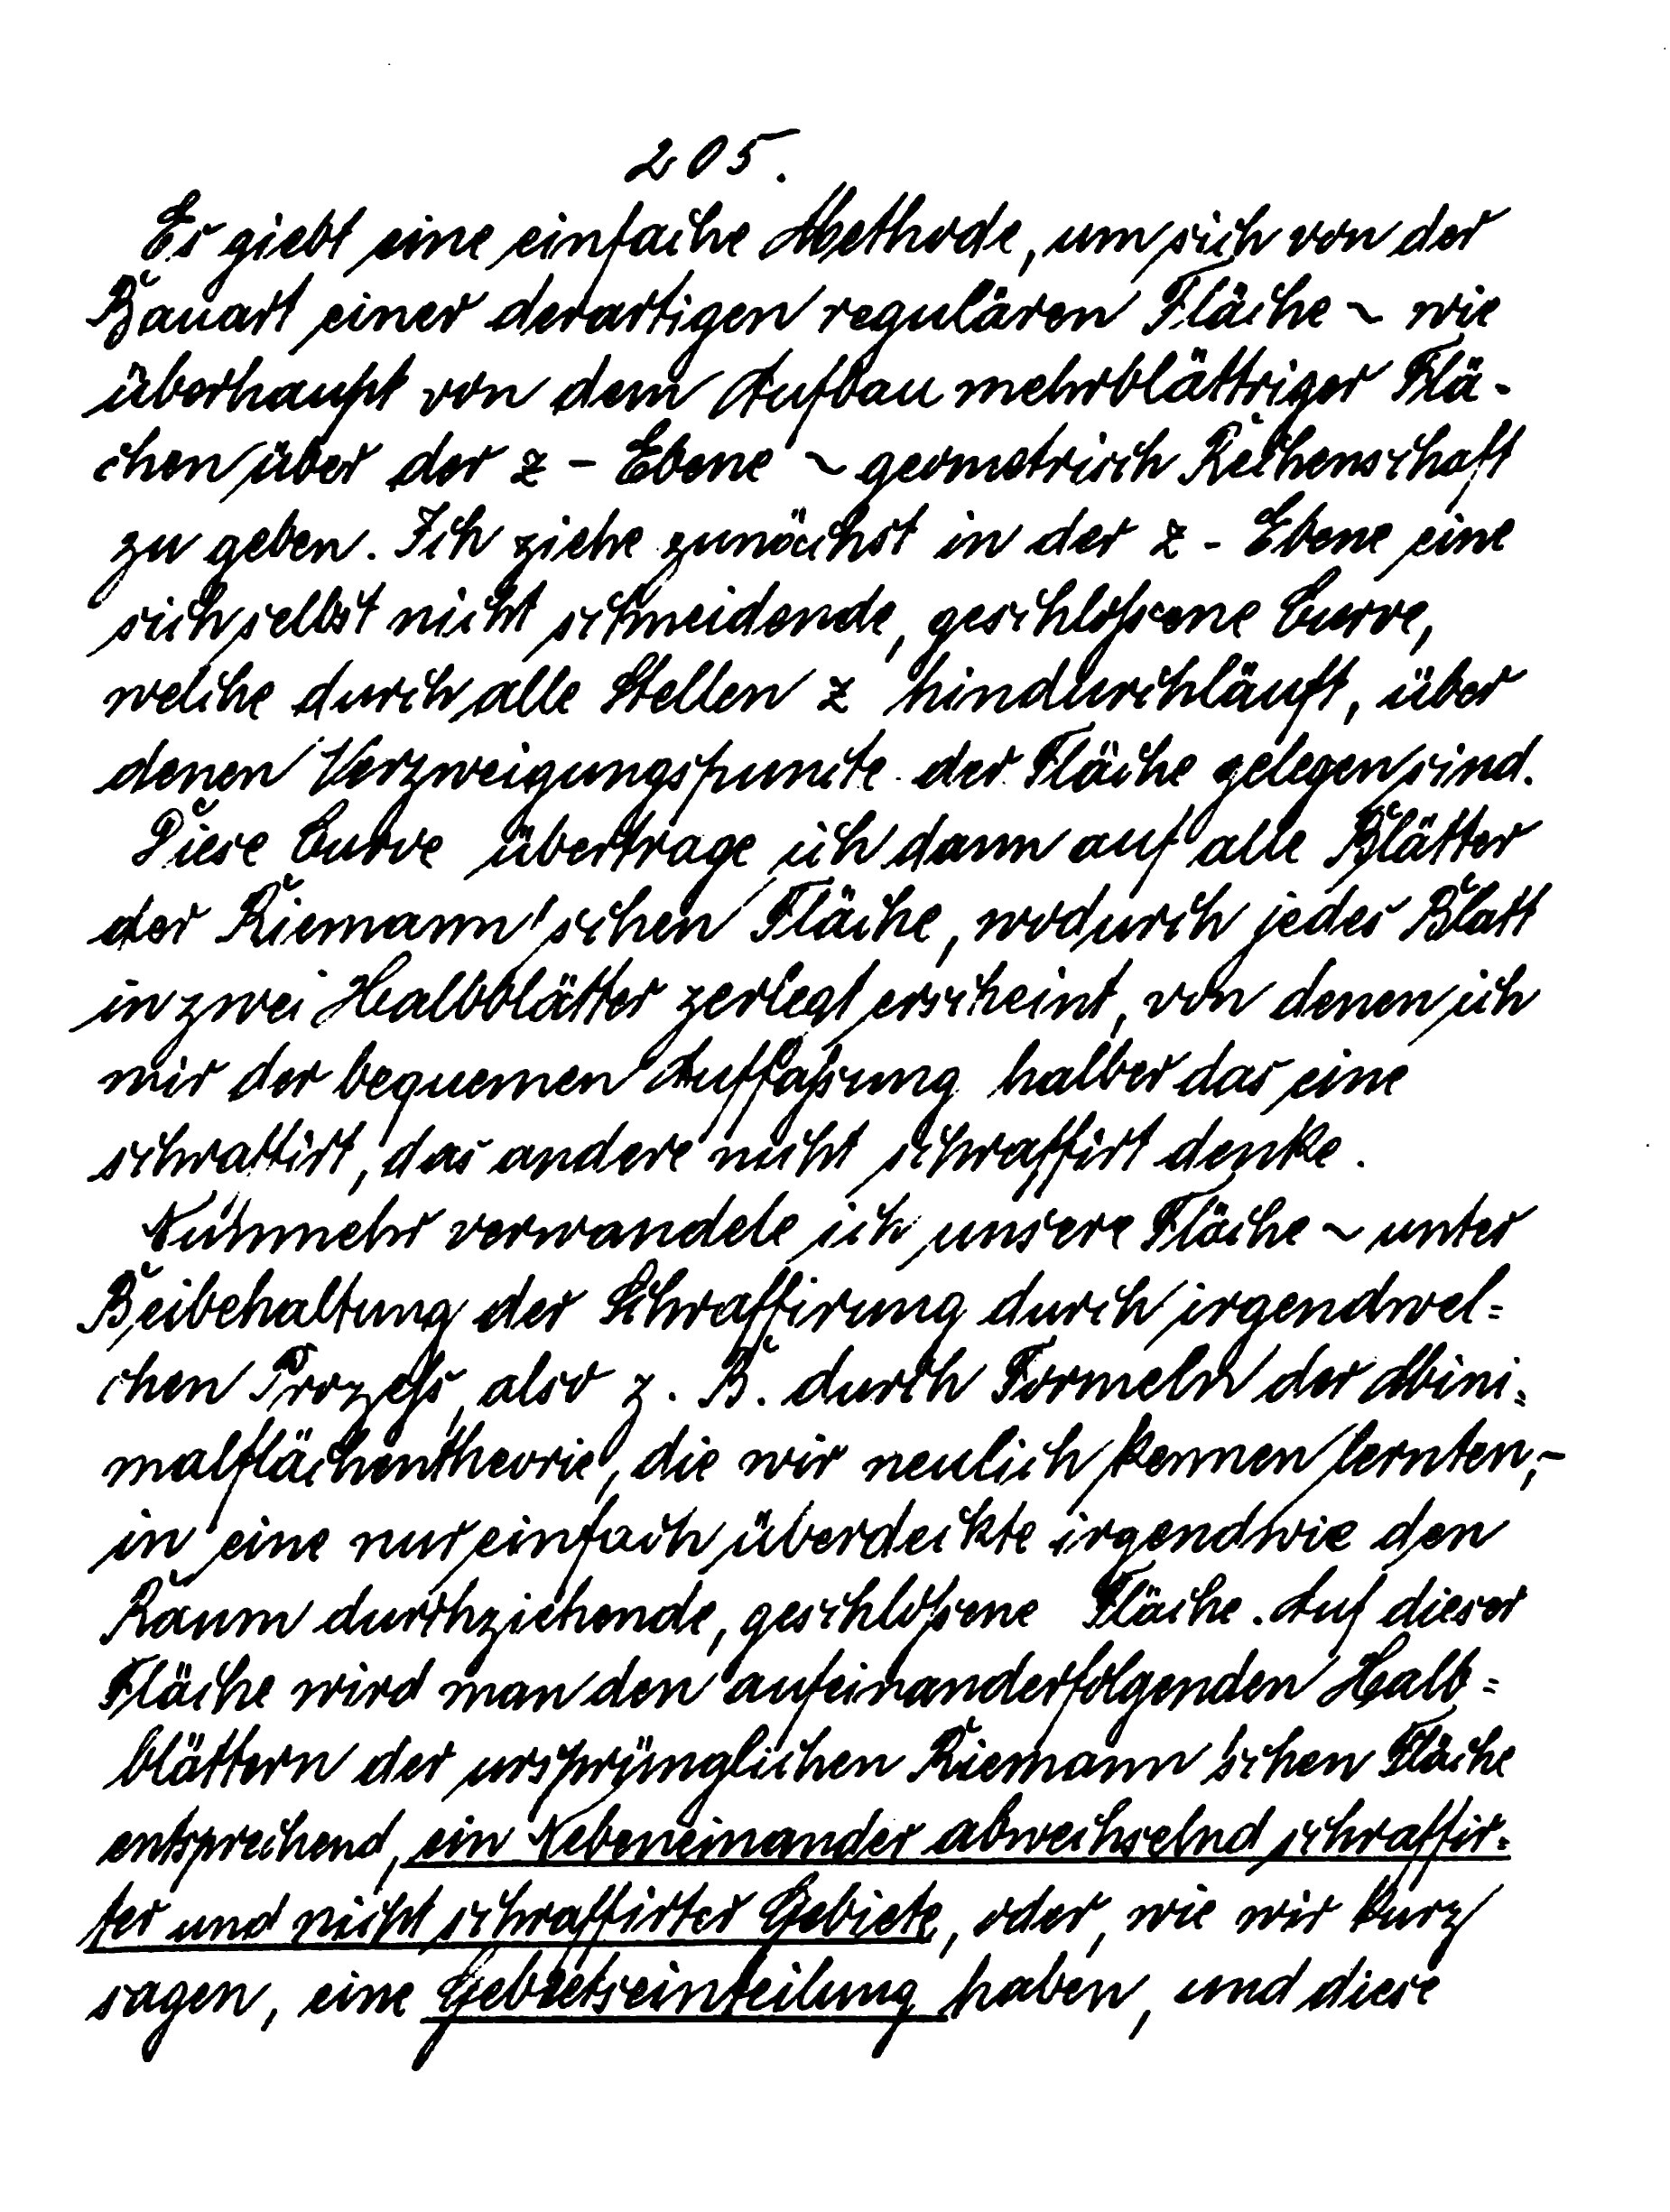 205.
Es giebt eine einfache Methode, um sich von der
Bauart einer derartigen regulären Fläche ~ wie
überhaupt von dem Aufbau mehrblättriger Flä-
chen über der z - Ebene ~ geometrisch Rechenschaft
zu geben. Ich ziehe zunächst in der z - Ebene eine
sich selbst nicht schneidende, geschloßene Curve,
welche durch alle Stellen z hindurchläuft, über
denen Verzweigungspuncte der Fläche gelegen sind.
Diese Curve übertrage ich dann auf alle Blätter
der Riemann'schen Fläche, wodurch jedes Blatt
in zwei Halbblätter zerlegt erscheint, von denen ich
mir der bequemen Auffaßung halber das eine
schraffirt, das andere nicht schraffirt denke.
Nunmehr verwandele ich unsere Fläche ~ unter
Beibehaltung der Schraffirung durch irgendwel=
chen Prozeß, also z. B. durch Formeln der Mini=
malflächentheorie, die wir neulich kennen lernten, -
in eine nur einfach überdeckte irgendwie den
Raum durchziehende, geschloßene Fläche. Auf dieser
Fläche wird man den aufeinanderfolgenden Halb=
blättern der ursprünglichen Riemann'schen Fläche
entsprechend, ein Nebeneinander abwechselnd schraffir=
ter und nicht schraffirter Gebiete, oder, wie wir kurz
sagen, eine Gebietseinteilung haben, und diese